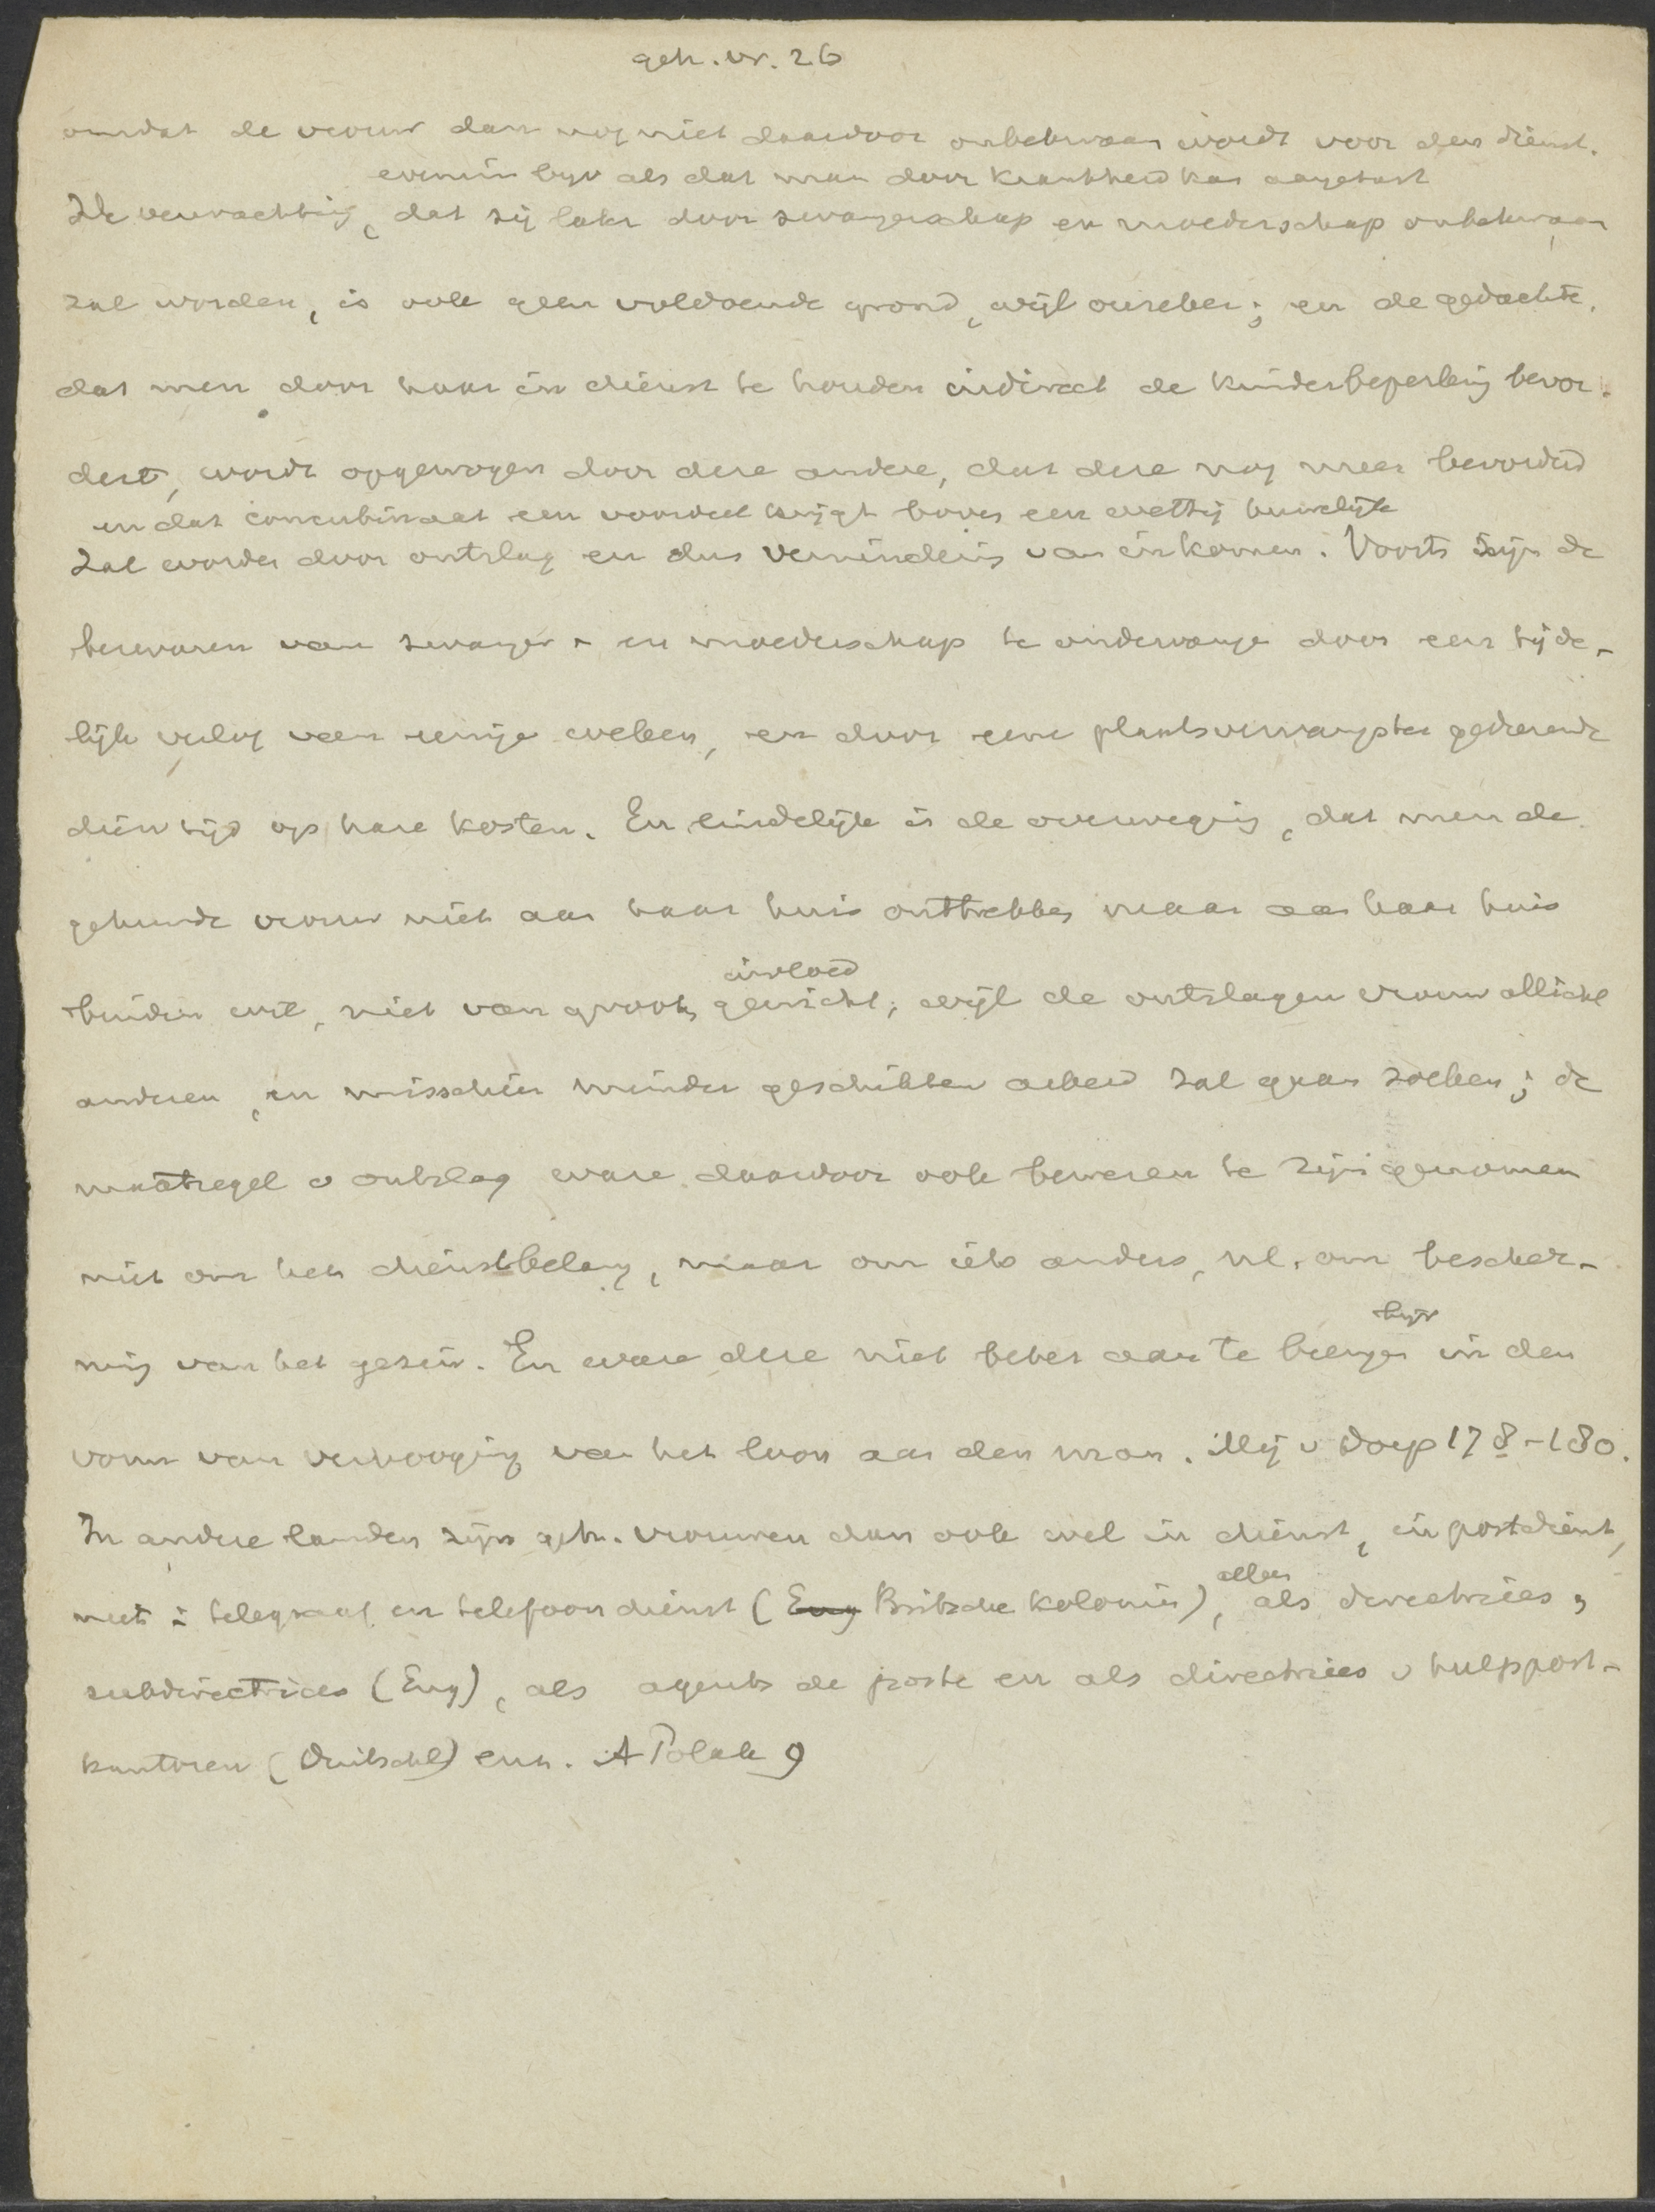 geh. vr. 26
omdat de vrouw dan nog niet daardoor onbekwaam wordt voor den dienst.
evenmin bijv als dat man door krankheid kan aangetast
De verwachting, dat zij later door zwangerschap en moederschap onbekwaam
zal worden, is ook geen voldoende grond, wijl onzeker; en de gedachte,
dat men door haar in dienst te houden indirect de kinderbeperking bevor-
dert, wordt opgewogen door deze andere, dat deze nog meer bevorderd
en dat concubinaat een voordeel krijgt boven een wettig huwelijk
zal worden door ontslag en dus vermindering van inkomen. Voorts zijn de
bezwaren van zwanger- en moederschap te ondervangen door een tijde-
lijk verlof van eenige weken, en door eene plaatsvervangster gedurende
dien tijd op hare kosten. En eindelijk is de overweging, dat men de
gehuwde vrouw niet aan haar huis onttrekken maar aan haar huis
binden wil, niet van groote gewicht; wijl de ontslagen vrouw allicht
invloed
anderen, en misschien minder geschikten arbeid zal gaan zoeken; de
maatregel v ontslag ware daardoor ook bewezen te zijn genomen
niet om het dienstbelang, maar om iets anders, nl. om bescher-
ming van het gezin. En ware deze niet beter aan te brengen in den
bijv
vorm van verhooging van het loon aan den man. Mej v Dorp 178-180.
In andere landen zijn geh. vrouwen dan ook wel in dienst, in postdienst,
niet i telegraaf en telefoondienst (Eng Britsche Koloniën), als directrices,
alleen
subdirectrices (Eng), als agents de poste en als directrices v hulppost-
kantoren (Duitschl) enz. A Polak 9